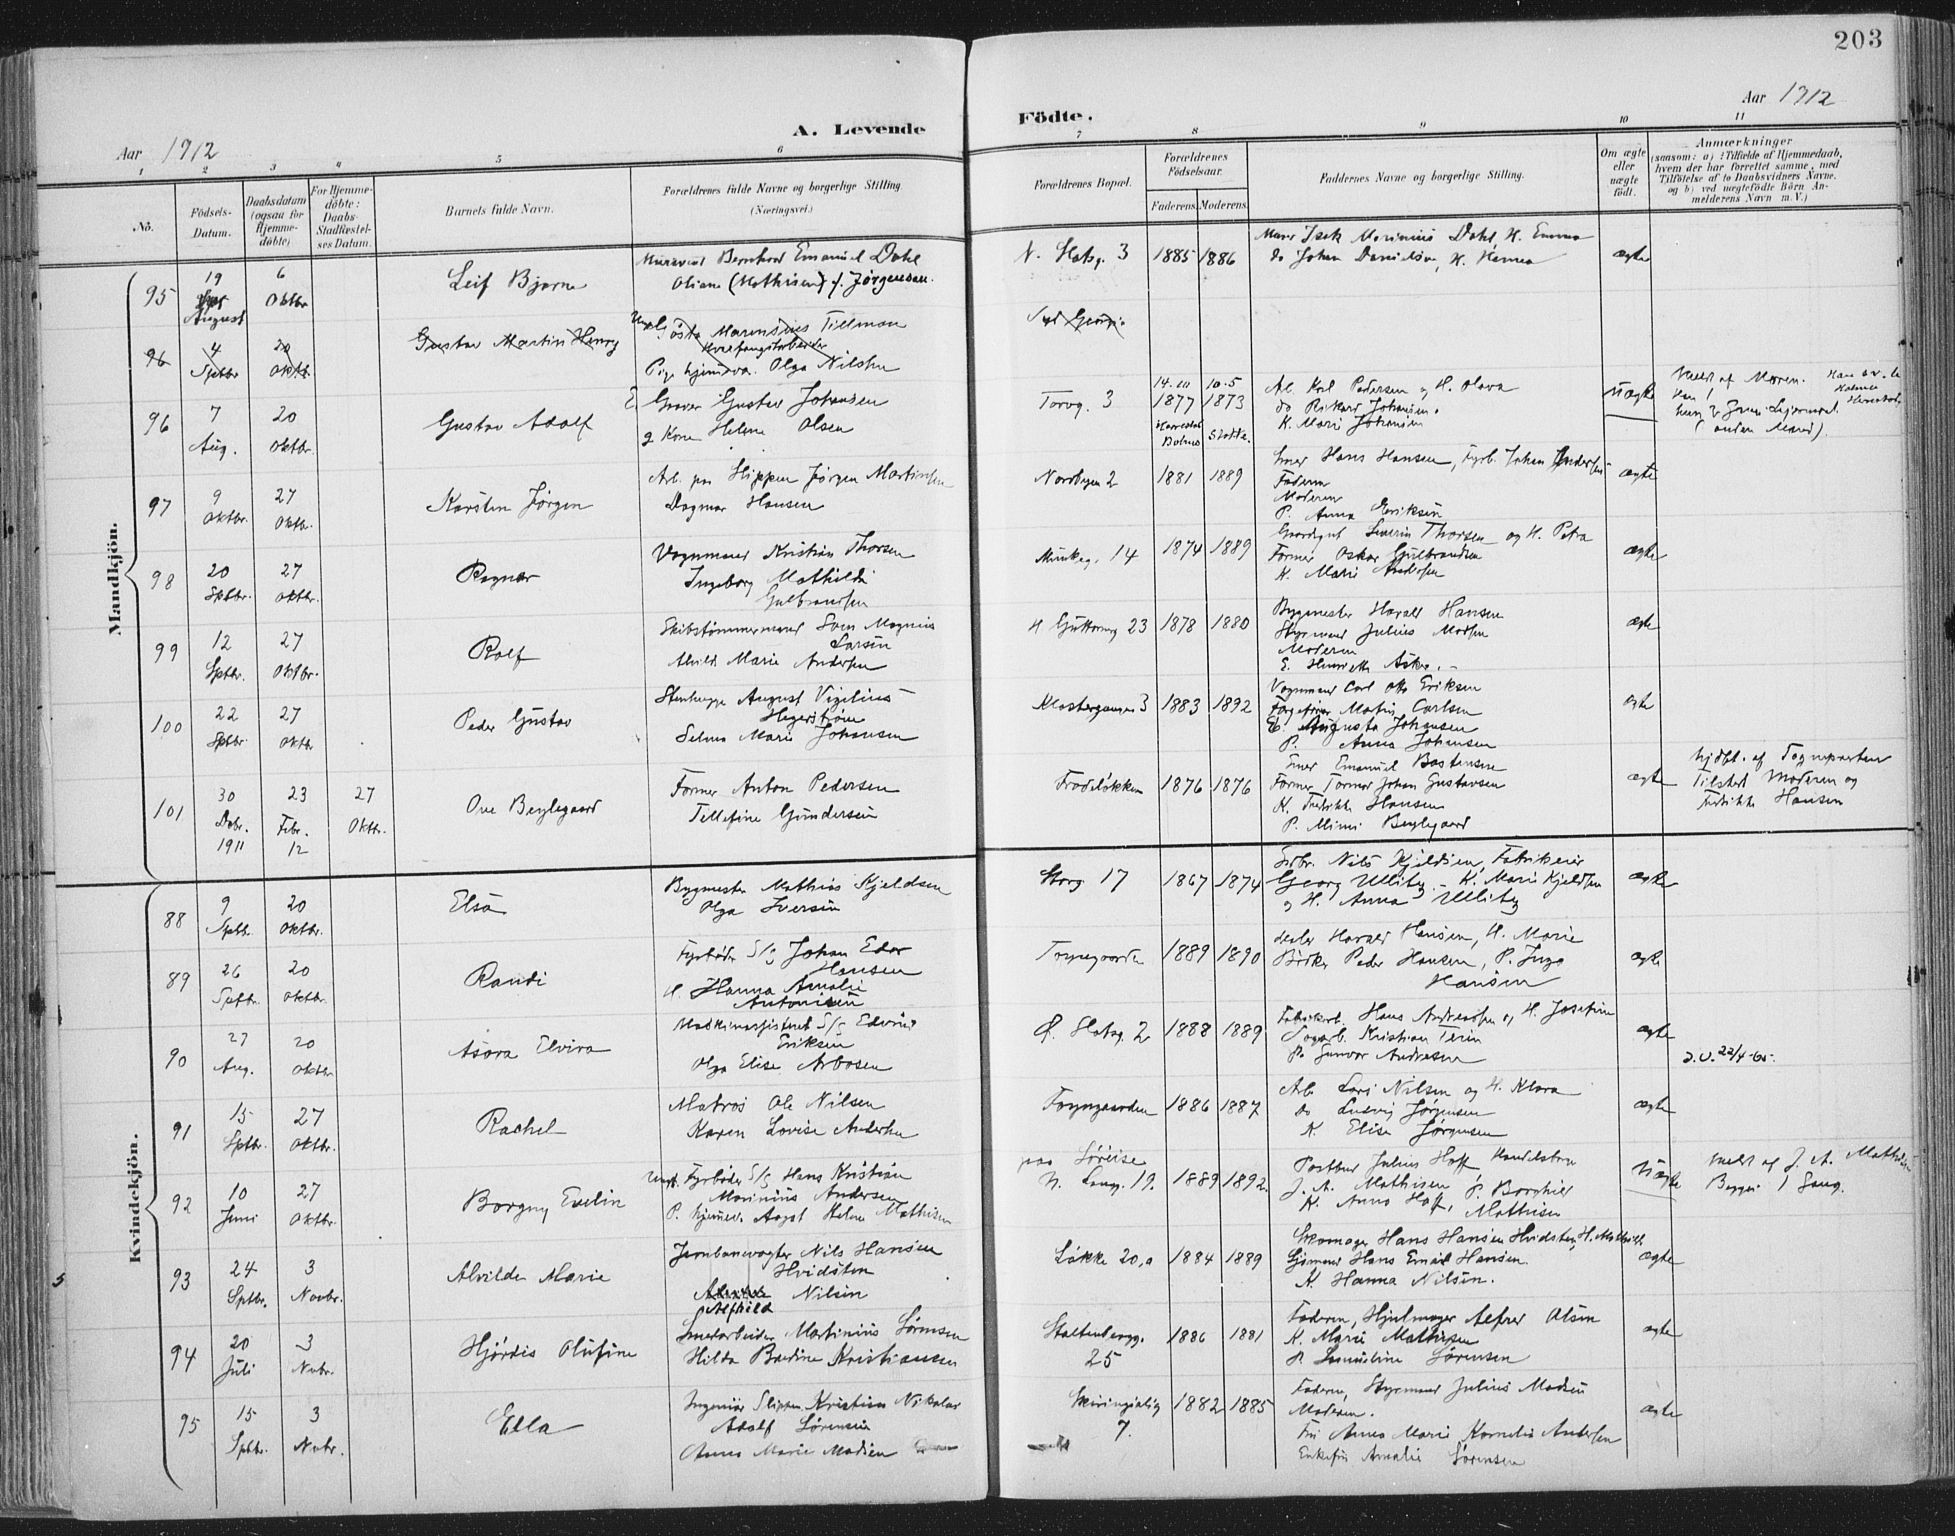 203
Aar 1912
A. Levende Födte.
Aar 1912
1 2 3 4 5 6 7 8 9 10 11
No.
Födsels-Datum.
Daabsdatum (ogsaa for Hjemme-döbte)
For Hjemme-döbte: Daabs-Stadfæstel-ses Datum.
Barnets fulde Navn.
Forældrenes fulde Navne og borgerlige Stilling (Næringsvei.)
Forældrenes Bopæl.
Forældrenes Födselsaar.
Faderens. Moderens.
Faddernes Navne og borgerlige Stilling.
Om ægte eller uægte födt.
Anmærkninger
(saasom: a) i Tilfælde af Hjemmedaab,
hvem der har forrettet samme, med
Tilföielse af to Daabsvidners Navne.
og b) ved uægtefödte Börn An-
melderens Navn m.V.)
Mandkjön.
95 19 August 6 Oktbr Leif Bjarne
Bernhard Emanuel Dahl
Oliane (Mathisen) f. Jørgensen.
N. Slotsg. 3 1885 1886
Isak Marinius Dahl, H. Emma
do Johan Danielsen, H. Hanna
ægte
96 4 Sptbr 20 Oktb. Gustav Martin Henry
Tillman
Pige hjemmeva. Olga Nilsen
Syd Georgia
96 7 Aug. 20 Oktbr. Gustav Adolf
Graver Gustav Johansen
g Kone Helene Olsen
Torvg. 3
1877 1873
Arb. Karl Pedersen og H. Olava
do Rikard Johansen.
K. Marie Johansen
uægte
Meldt af Moren.
97 9 Oktbr. 27 Oktbr. Karsten Jørgen
Arb. paa Slippen Jørgen Martinsen
Dagmar Hansen
Nordbyen 2 1881 1889
Hans Hansen, Fyrb. Johan Andersen
Faderen
Moderen
P. Anna Eriksen
ægte
98 20 Sptbr. 27 Oktbr. Ragnar
Vognmand Kristian Thorsen
Ingeborg Mathilde
Gulbrandsen
Munkeg. 14 1874 1889
Severin Thorsen og H. Petra
Former Oskar Gulbrandsen
K. Marie Andersen
ægte
99 12 Sptbr. 27 Oktbr. Rolf
Skibstømmermand Sam Magnus
Larsen
Alvild Marie Andersen
23 1878 1880
Bygmester Harald Hansen
Styrmand Julius Madsen
Moderen
E. Henriette Aske.
ægte
100 22 Sptbr. 27 Oktbr Peder Gustav
Stenhugger August Vigilius
Hegerstrøm
Selma Marie Johansen
Klostergangen 3 1883 1892
Vognmand Carl Otto Eriksen
Martin Carlsen
E. Augusta Johansen
P. Anna Johansen
ægte
101 30 Debr. 1911 23 Febr. 12 27 Oktbr. Ove Beylegaard
Former Anton Pedersen
Tellefine Gundersen
Frodeløkken 1876 1876
Emanuel Bastensen
Former Tormod Johan Gustavsen
K. Fredrikke Hansen
P. Mimi Beylegaard
ægte
hjdbt. af Sognepresten
Tilstede Moderen og
Fredrikke Hansen
Kvindekjön.
88 9 Sptb. 20 Oktbr. Elsa
Bygmester Mathias Kjeldsen
Olga Iversen
Storg 17 1867 1874
Nils Kjeldsen, Fabrikeier
Georg Ulliby. K. Marie Kjeldsen
og H. Anna Ulliby
ægte
89 26 Sptbr. 20 Oktbr. Randi
Fyrbøder S/s Johan Edor
Hansen
H. Hanna Amalie
Antonisen
Foynegaarden 1889 1890
Harald Hansen, H. Marie
Bødker Peder Hansen, P. Inga
Hansen
ægte
90 27 Aug. 20 Oktbr Asora Elvira
Maskinassistent S/s Edvard
Eriksen
Olga Elise Arbosen
Ø. Slotsg. 2 1888 1889
Fabrikarb. Hans Andreassen og H. Josefine
Kristian Terin
P. Gunvor Andresen
ægte
D.U. 22/4-65.
91 15 Sptbr. 27 Oktbr. Rachel
Matros Ole Nilsen
Karen Lovise Andersen
Foyngaarden 1886 1887
Arb. Lars Nilsen og H. Klara
do Ludvig Jørgensen
K. Elise Jørgensen
ægte
92 10 Juni 27 Oktbr. Borgny Evelin
Ungk. Fyrbøder S/s Hans Kristian
Marinius Andersen
P. hjemmev. Aagot Helene Mathisen
paa Søreise
N. Langg. 19. 1889 1892.
Postbud Julius Hoff Handelsbm
J. A. Mathisen P. Borghild
K. Anna Hoff, Mathisen
uægte
Meldt af J. A. Mathisen
Begges 1 Gang.
93 24 Sptbr. 3 Novbr. Alvilde Marie
Jernbanevogter Nils Hansen
Hvidsten
Alfhild Nilsen
Løkke 20,a 1884 1889
Skomager Hans Hansen Hvidsten, H. Mathilde
Sjømand Hans Emil Hansen.
K. Hanna Nilsen.
ægte
94 20 Juli 3 Nvbr. Hjördis Olufine
Smedarbeider Martinius Sørensen
Hilda Bredine Kristiansen
Stoltenbergg. 25 1886 1881
Faderen, Hjulmager Alfred Olsen
K. Marie Mathisen
P. Samueline Sørensen
ægte
95 15 Sptbr. 3 Nvbr. Ella
Ingeniør Slippen Kristian Nikolai
Adolf Sørensen
Anna Marie Madsen
Skiringsalsg 7. 1882 1885
Faderen, Styrmand Julius Madsen
Moderen.
Fru Anna Marie Kornelia Andersen
Enkefru Amalie Sørensen
ægte